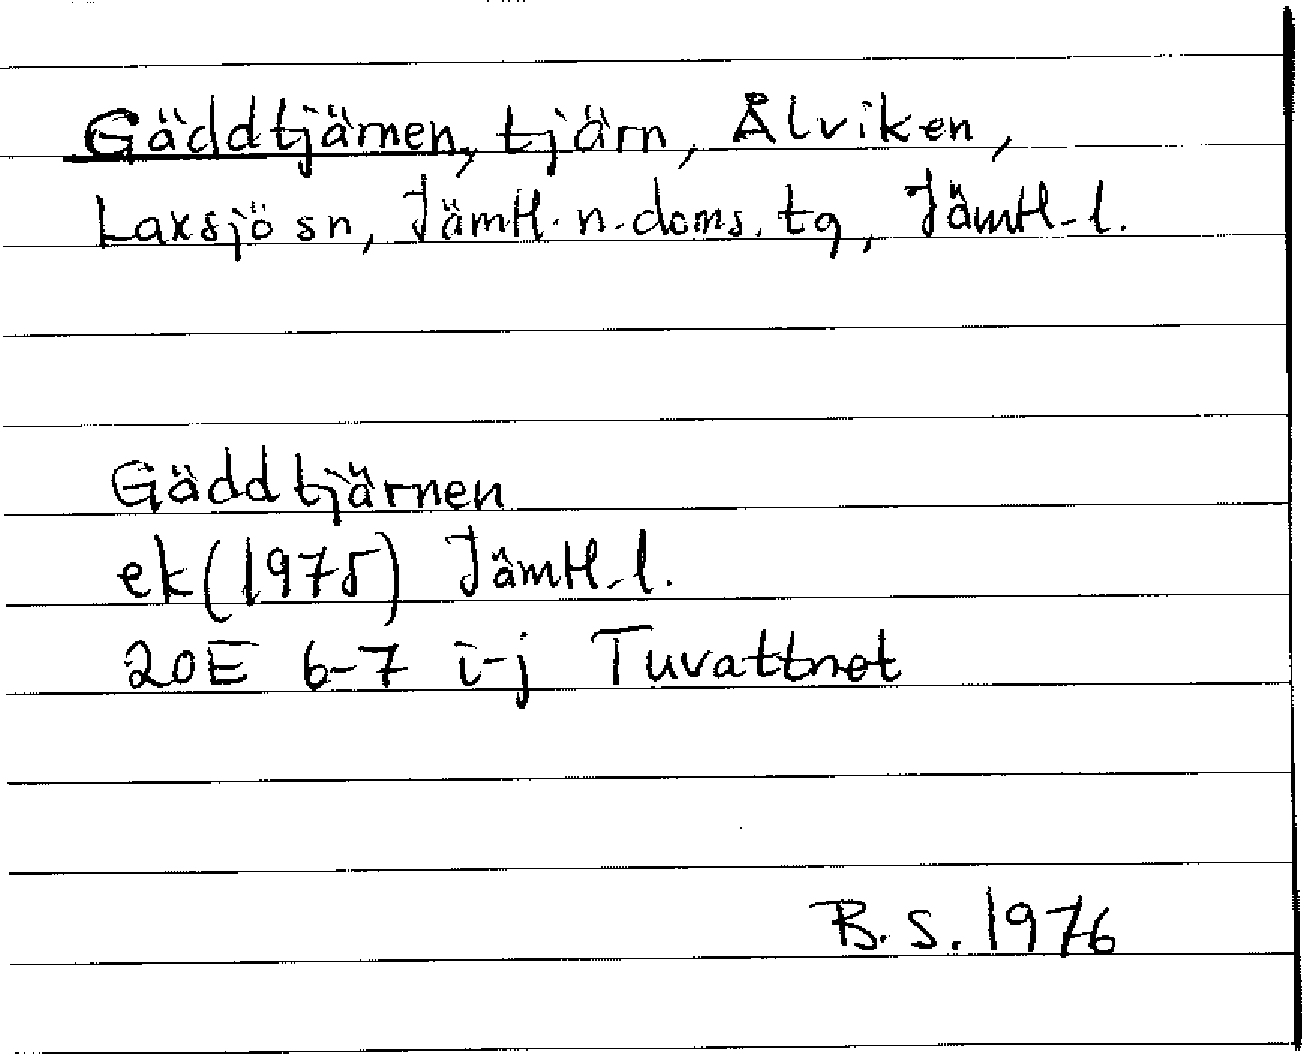 Gäddtjärnen, tjärn, Ålviken,
Laxsjö sn, Jämtl. n. doms. tg, Jämtl. l.
Gäddtjärnen
ek (1975) Jämtl. l.
20E 6-7 i-j Tuvattnet
B. S. 1976